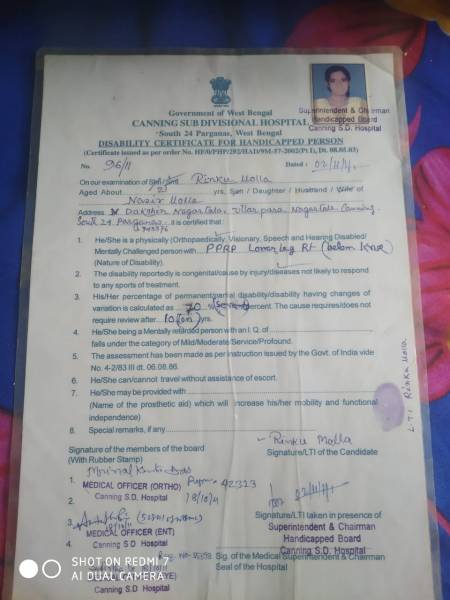 Government of West Bengal
CANNING SUB DIVISIONAL HOSPITAL
South 24 Parganas, West Bengal
DISABILITY CERTIFICATE FOR HANDICAPPED PERSON
(Certificate issued as per order No. HF/O/PHP/292/HAD/9M-57-2002(Pt.I), Dt. 08.05.03)
Superintendent & Chairman
Handicapped Board
Canning S.D. Hospital
No. 96/11 Dated : 02/11/11
On our examination of Sri/Smt Rinku Molla
Aged About 21 yrs, Son / Daughter / Husband / Wife of
Nasir Molla
Address Dakshin Nagartala, Nagartala Canning
South 24 Parganas it is certified that :
1. He/She is a physically (Orthopaedically, Visionary, Speech and Hearing Disabled/
Mentally Challenged person with PPRP Lower leg Rt (below knee)
(Nature of Disability).
2. The disability reportedly is congenital/cause by injury/diseases not likely to respond
to any sports of treatment.
3. His/Her percentage of permanent/partial disability/disability having changes
of variation is calculated as 70 (Seventy) percent. The cause requires/does not
require review after 10 (ten) yrs.
4. He/She being a Mentally retarded person with an I.Q. of
falls under the category of Mild/Moderate/Service/Profound.
5. The assessment has been made as per instruction issued by the Govt. of India vide
No. 4-2/83 III dt. 06.08.86.
6. He/She can/cannot travel without assistance of escort.
7. He/She may be provided with
(Name of the prosthetic aid) which will increase his/her mobility and functional
independence)
8. Special remarks, if any
L.T.I Rinku Molla
Rinku Molla
Signature of the members of the board Signature/LTI of the Candidate
(With Rubber Stamp)
1. MEDICAL OFFICER (ORTHO) 42323
Canning S.D. Hospital 18/10/11
2.
02/11/11
3. 18/10/11
Signature/LTI taken in presence of
MEDICAL OFFICER (ENT) Superintendent & Chairman
4. Canning S.D. Hospital Handicapped Board
Canning S.D. Hospital
Sig. of the Medical Superintendent & Chairman
Seal of the Hospital
SHOT ON REDMI 7
AI DUAL CAMERA